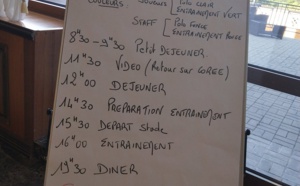 COULEURS JOUEURS [ Polo CLAIR
ENTRAINEMENT VERT
STAFF [ Polo FONCE
ENTRAINEMENT ROUGE
8H30 - 9H30 Petit DEJEUNER.
11H30 VIDEO (Retour sur GORGE)
12H00 DEJEUNER
14H30 PREPARATION ENTRAINEMENT
15H30 DEPART Stade
16H00 ENTRAINEMENT
19H30 DINER